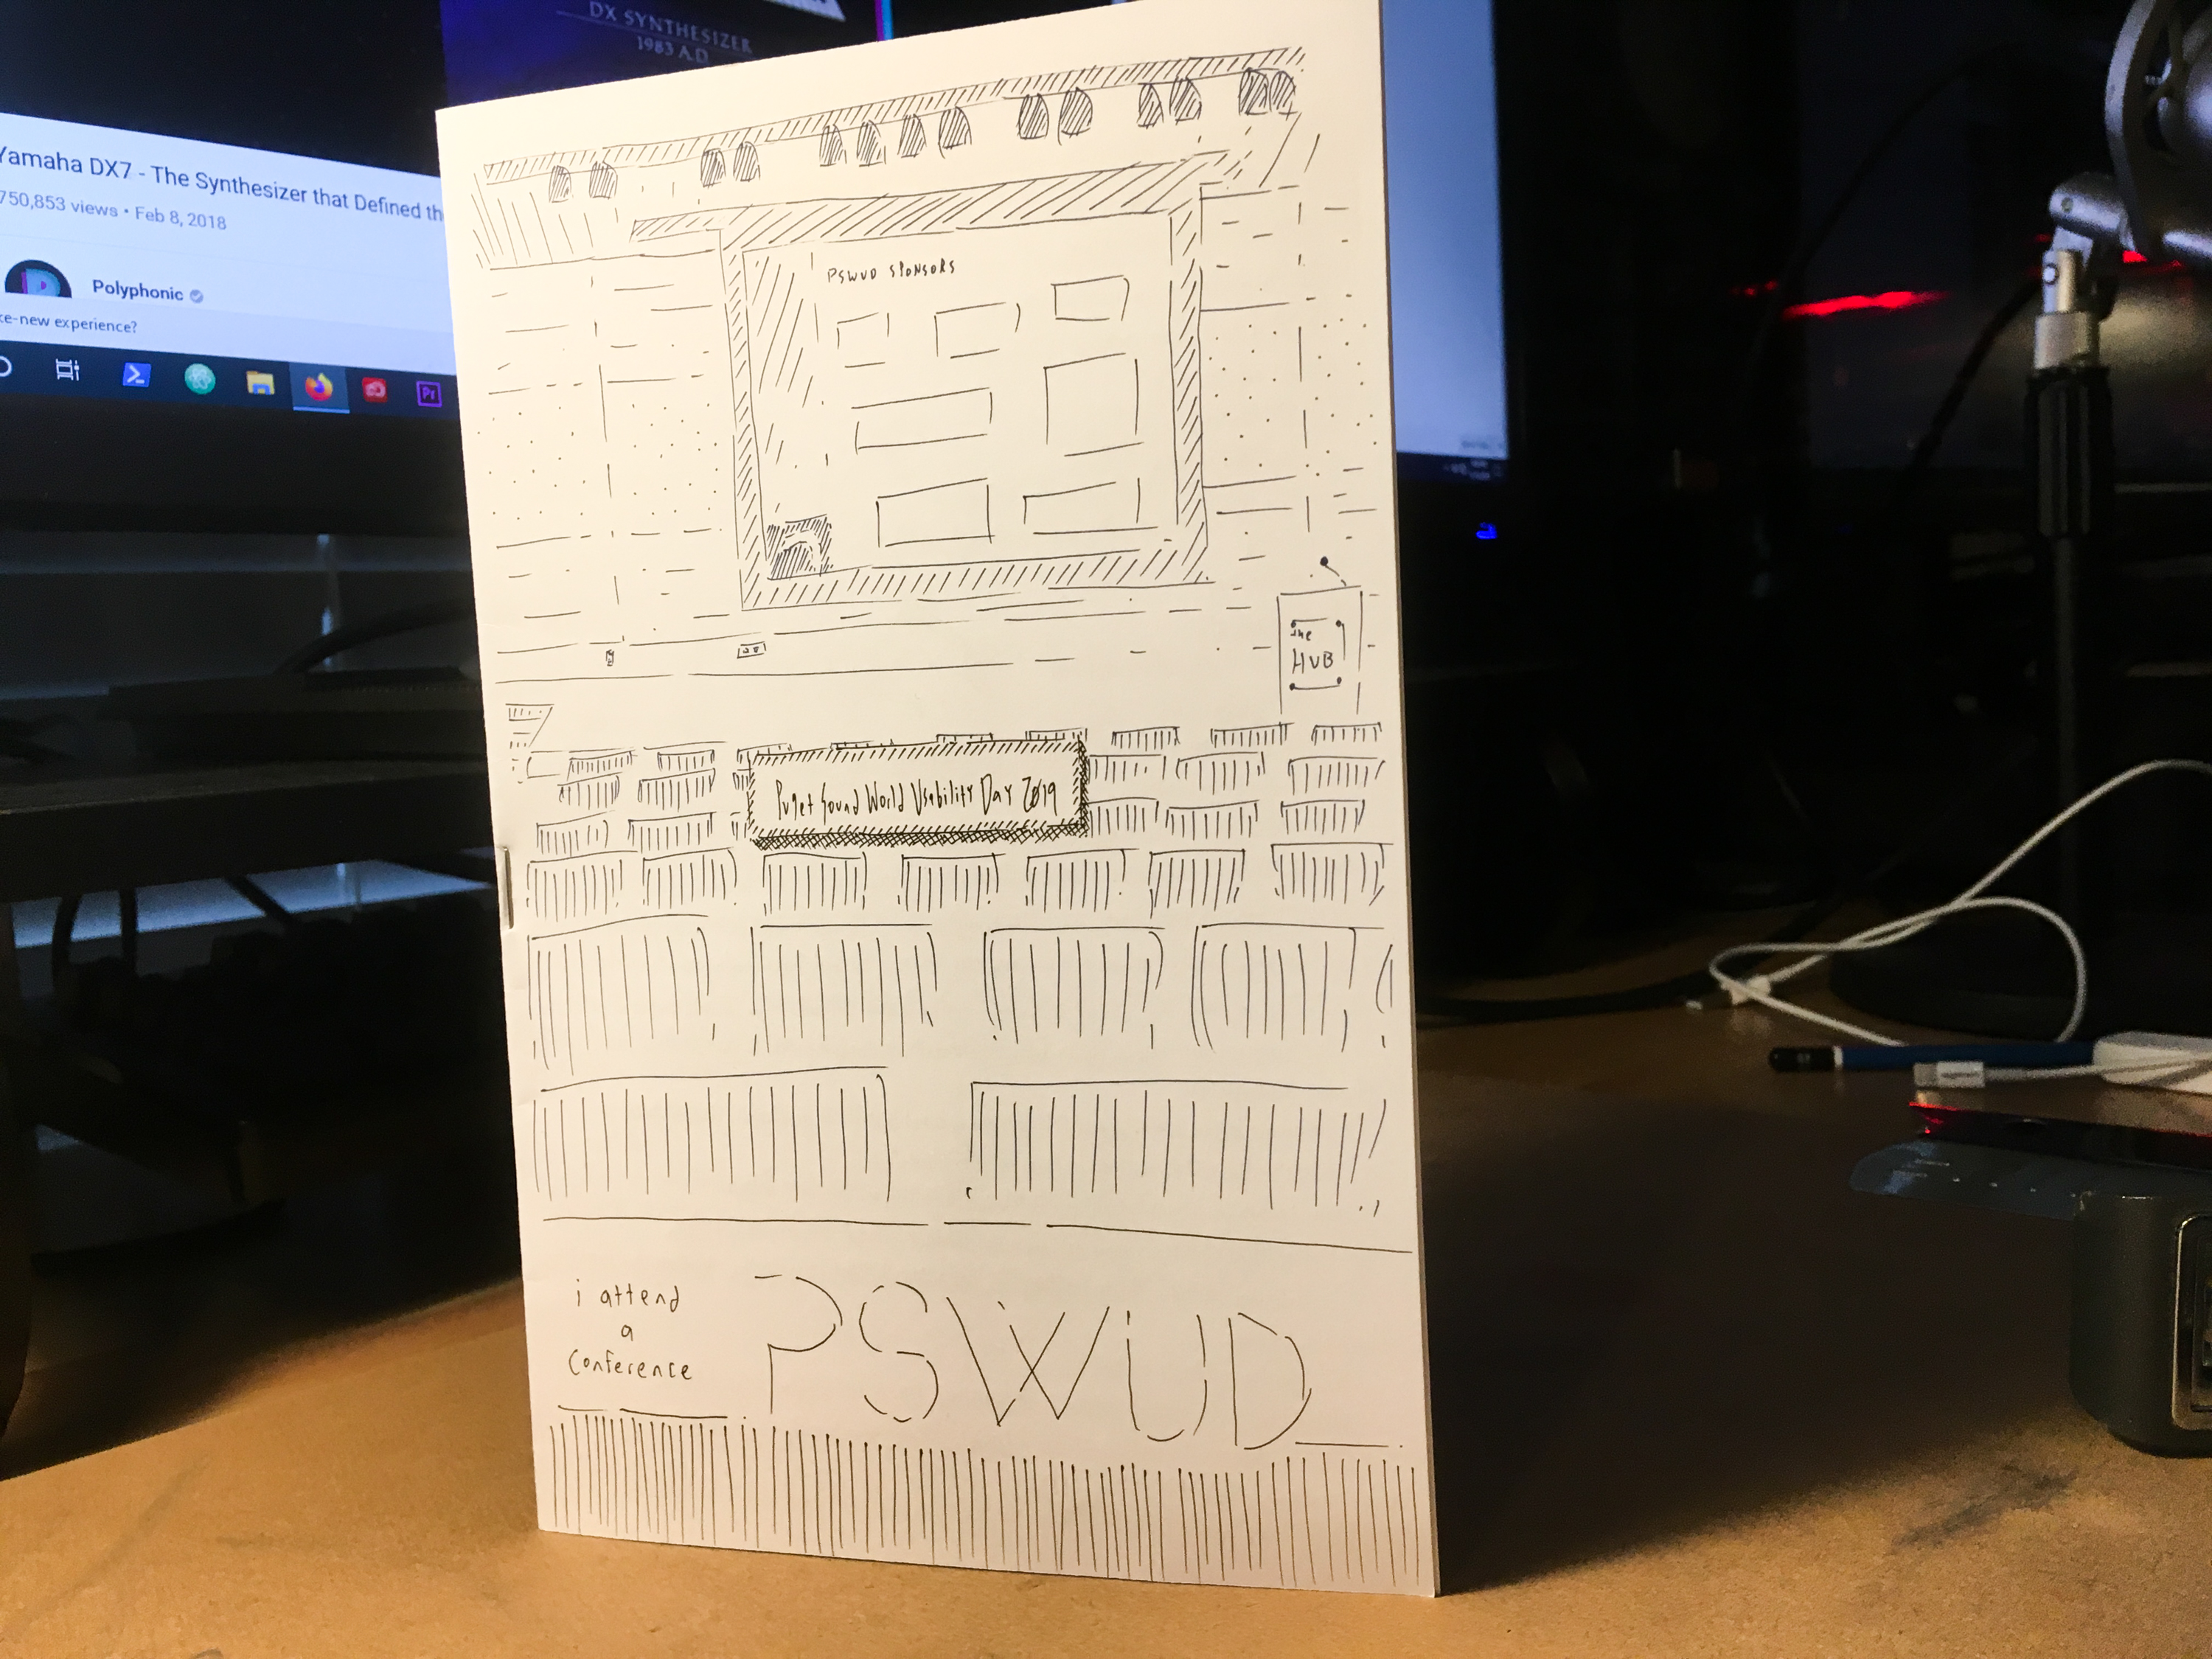 DX SYNTHESIZER
1983 A.D.
Yamaha DX7 - The Synthesizer that Defined th
750,853 views • Feb 8, 2018
Polyphonic
ke-new experience?
Pr
PSWUD SPONSORS
The
HUB
Puget Sound World Usability Day 2019
i attend
a
Conference
PSWUD